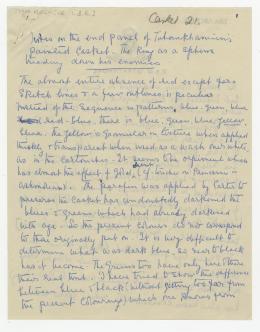 Casket 21.
Notes on the end panel of Tutankhamun's
Painted Casket. The King as a Sphinx
treading down his enemies
The almost entire absence of red except for a
few outlines is peculiar
instead of the sequence in patterns, blue, green, blue
red, blue, there is blue, green, blue, yellow
blue. The yellow is granular in texture when applied
thickly & transparent when used as a wash over white,
as in the cartouches. It seems to be orpiment which
has almost the effect of gold.
The paraffin was applied by Carter to
preserve the casket has undoubtedly darkened the
blues & greens, which had already darkened
with age. So the present colours do not correspond
to those originally put on. It is very difficult to
determine what was dark blue, so near to black
has it become. The greens too have only here & there
their real tint. I have tried to show the difference
between blue & black without getting too far from
the present colouring which one knows from